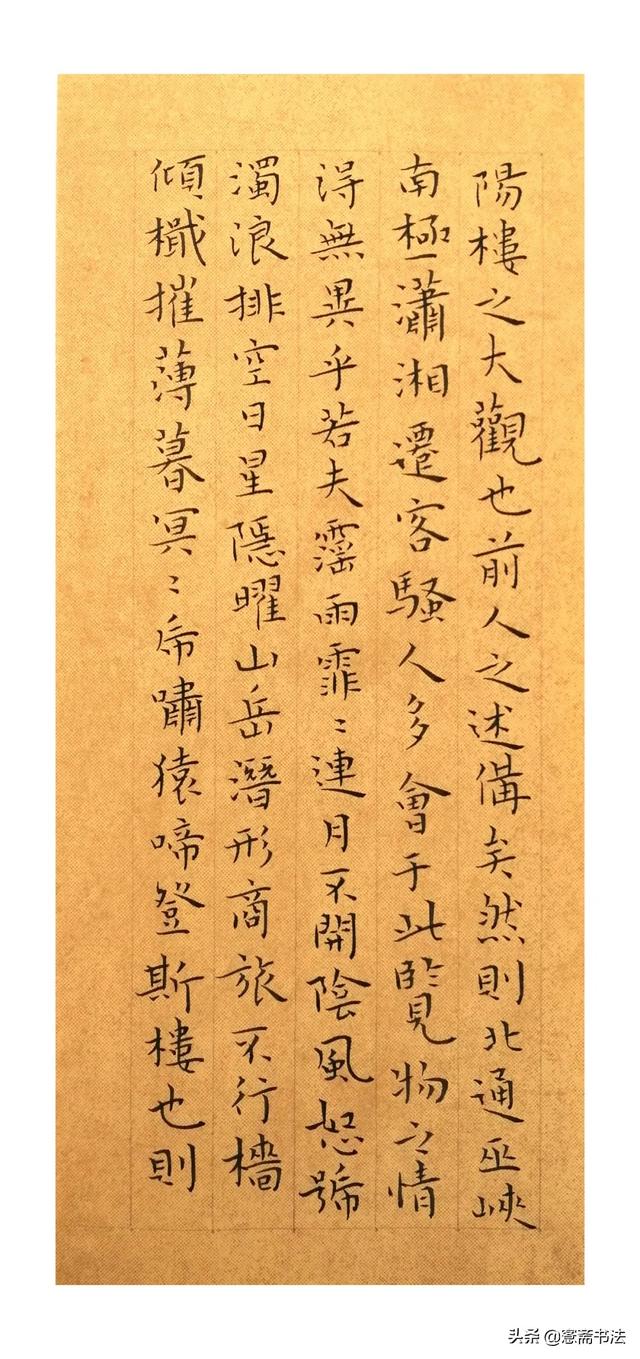 陽樓之大觀也前人之述備矣然則北通巫峽
南極瀟湘遷客騷人多會于此覽物之情
得無異乎若夫霪雨霏〻連月不開陰風怒號
濁浪排空日星隱曜山岳潛形商旅不行檣
傾檝摧薄暮冥〻虎嘯猿啼登斯樓也則
头条 @憲斋书法